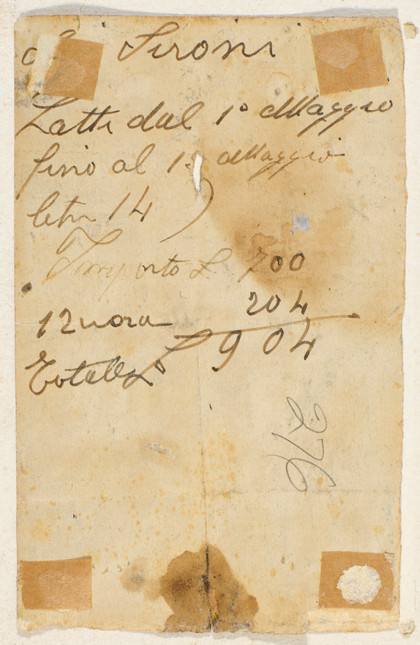 Sironi
Latti dal 1° Maggio
fino al 1 Maggio
letri 14
Importo L 700
12 uova 204
Totalle L 904
276